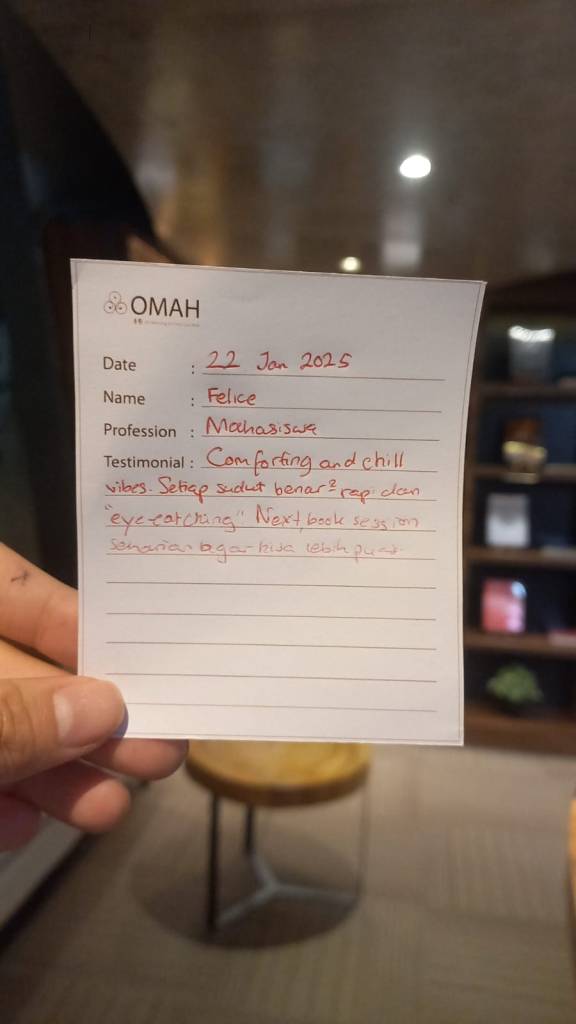 OMAH
Date : 22 Jan 2025
Name : Felice
Profession : Mahasiswa
Testimonial : Comforting and chill
vibes. Setiap sudut benar² rapi dan
"eye-catching" Next, book session
seharian agar bisa lebih puas.